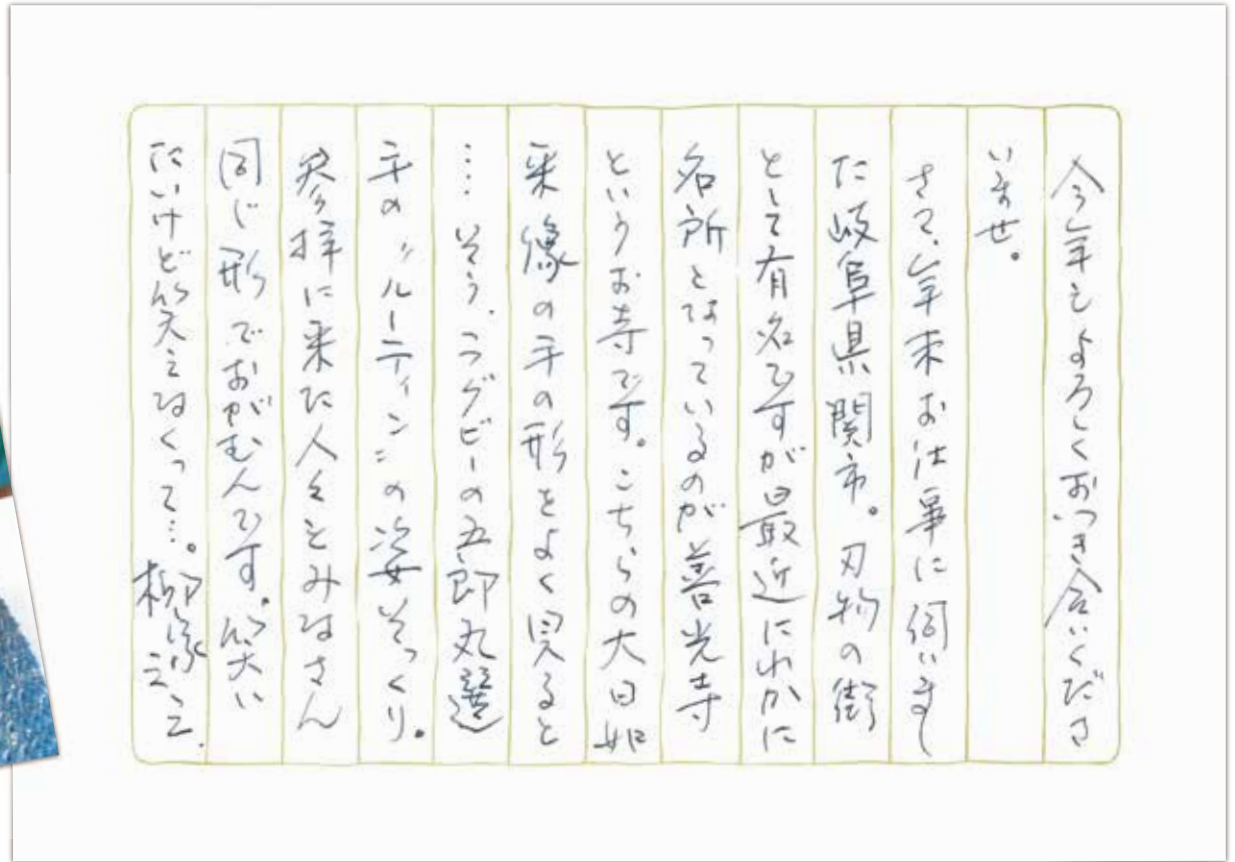 今年もよろしくおつき合いくださ
いませ。
さて、年末お仕事に伺いまし
た岐阜県関市。刃物の街
として有名ですが最近にわかに
名所となっているのが善光寺
というお寺です。こちらの大日如
来像の手の形をよく見ると
…. そう、ラグビーの五郎丸選
手の〃ルーティン〃の姿そっくり。
参拝に来た人々もみなさん
同じ形でおがむんです。笑い
たいけど笑えなくって…。